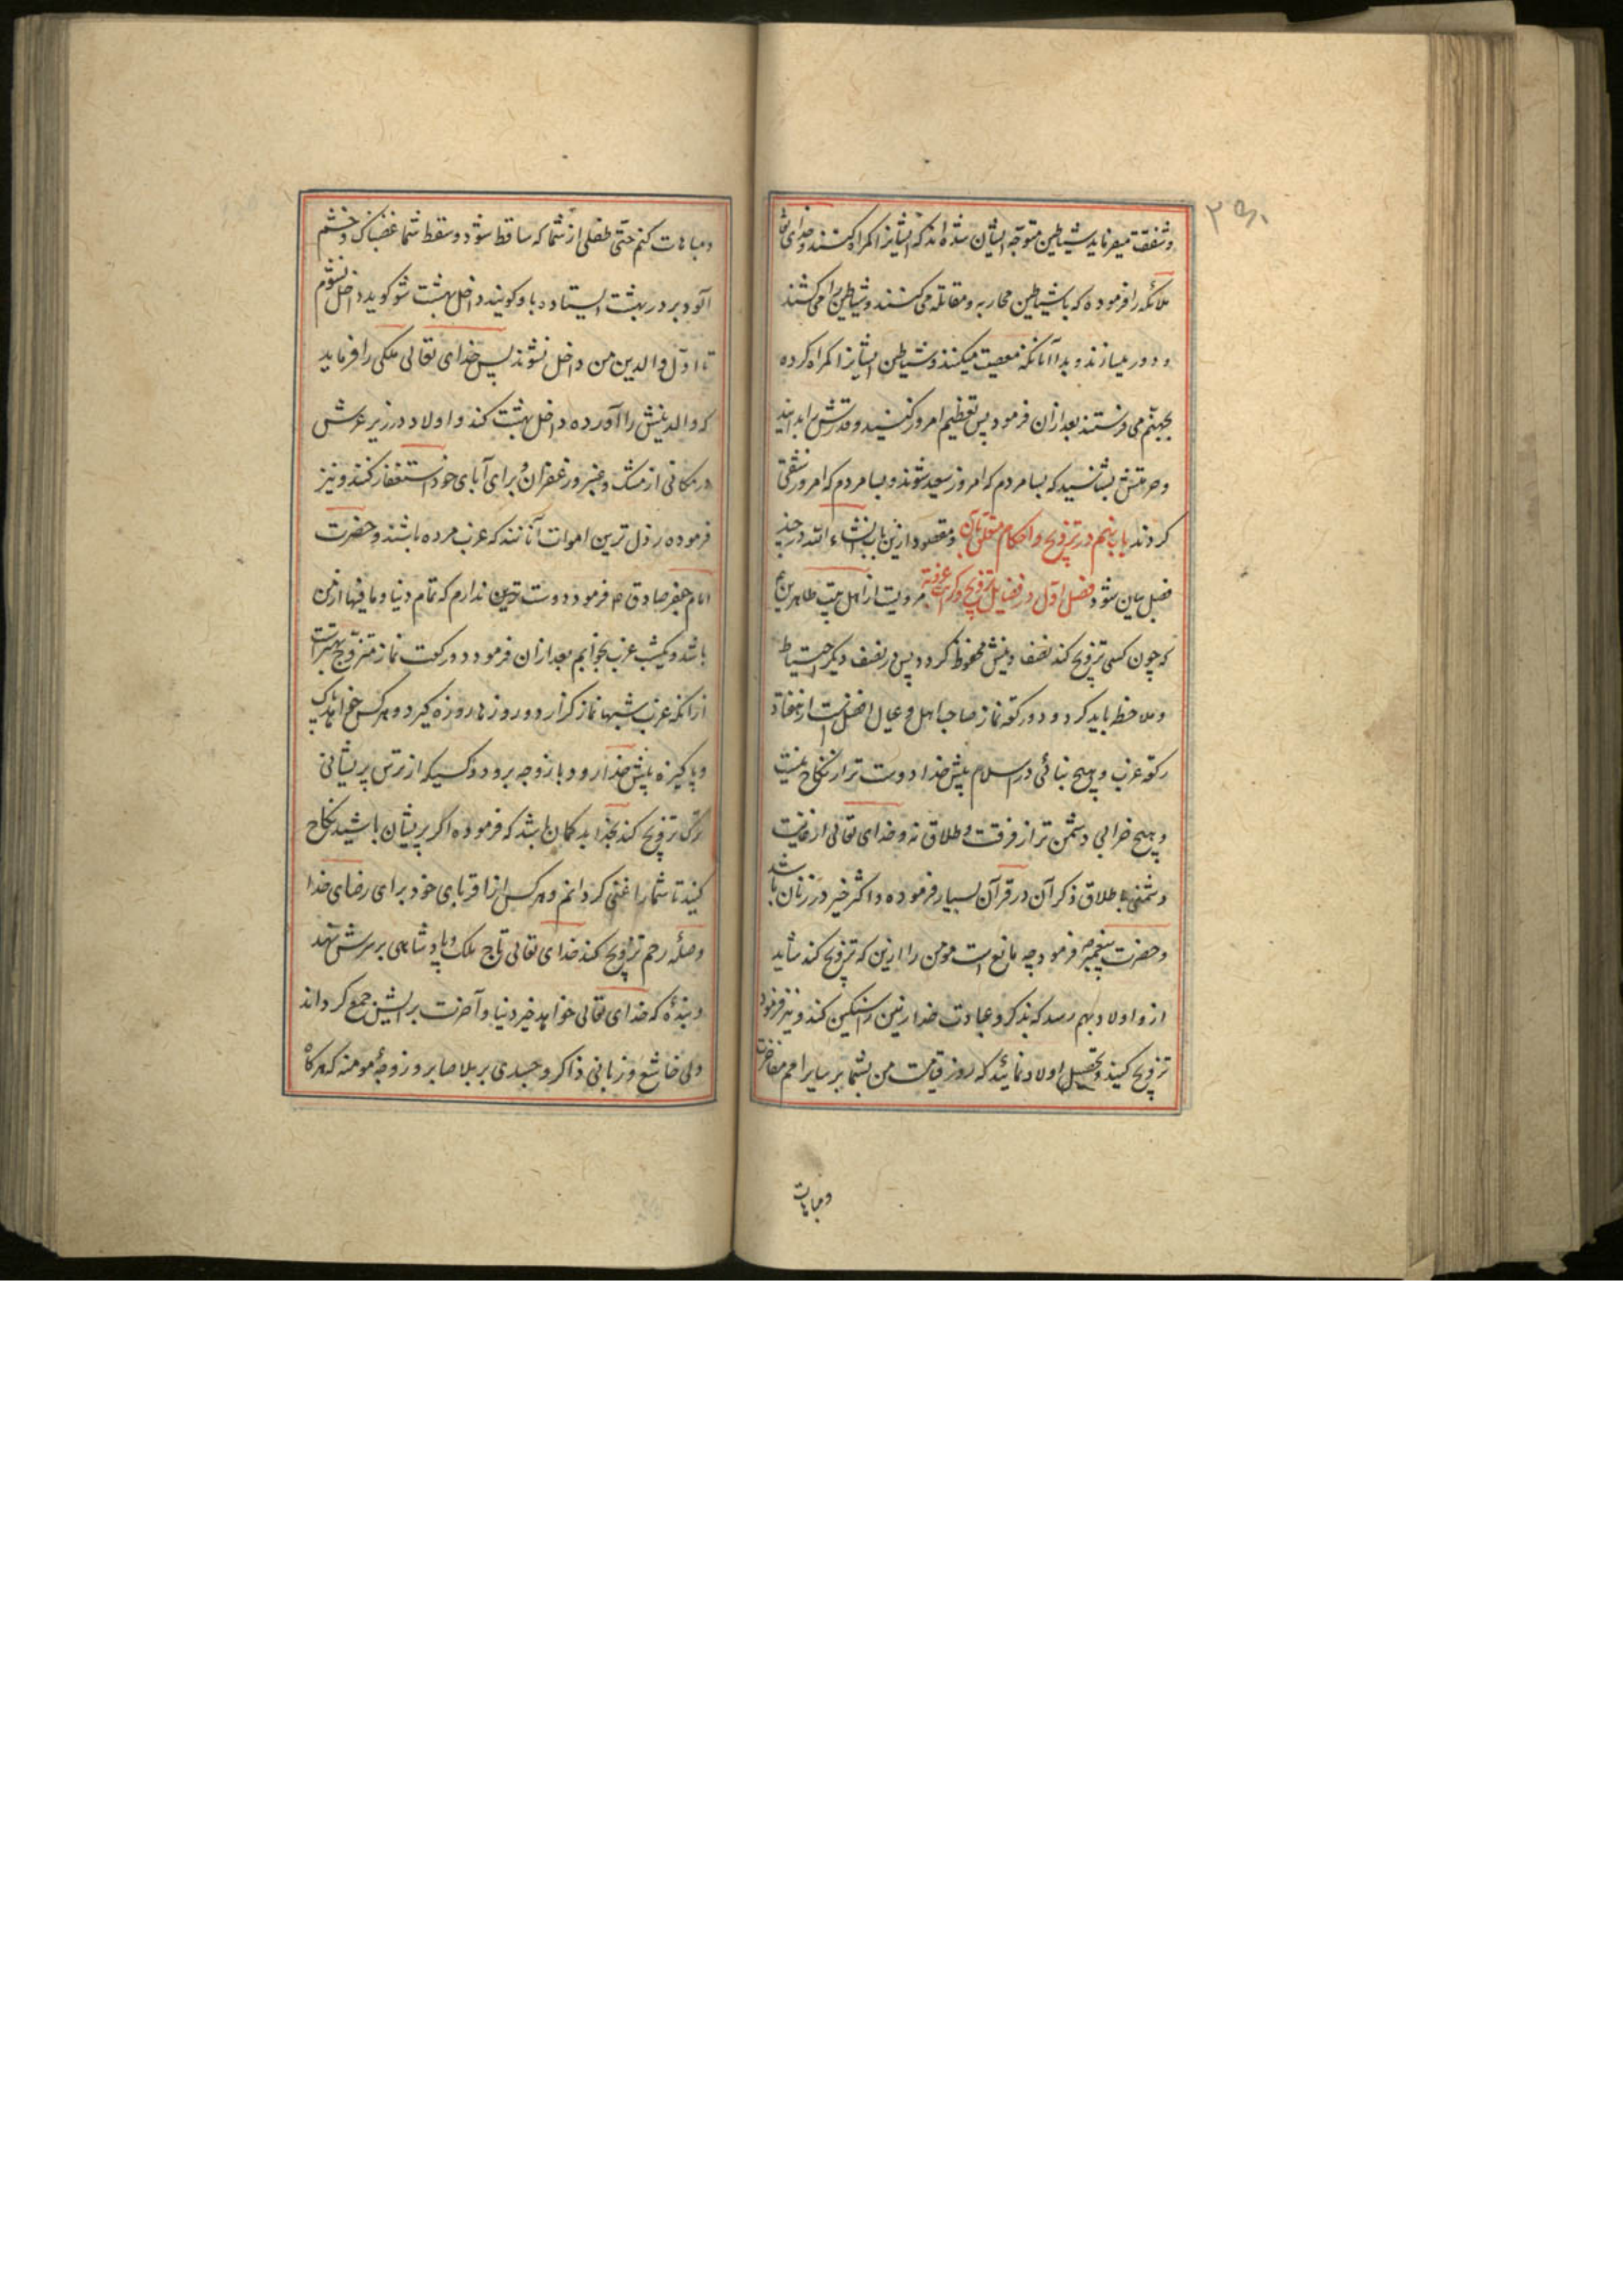 وشفقت میفرماید شیاطین متوجه ایشان شده‌اند که ایشانرا کمراه کنند و خدای تعا
ملائکه را فرموده که با شیاطین محاربه و مقاتله می کنند و شیاطین را می کشند
و دور میسازند و بدا آنانکه معصیت میکنند و شیاطین ایشانرا کمراه کرده
بجهنم می فرستند بعد ازان فرمود پس تعظیم امروز کنید و قدرش را بدانید
و حرمتش بشناسید که بسا مردم که امروز سعید شوند و بسا مردم که امروز شقی
کردند باب پنجم در تزویج و احکام متعلق بآن و مقصود ازین باب انشاء الله در چند
فصل بیان شود فصل اول در فضایل تزویج و کراهت عزوبة مرویست از اهل بیت طاهرین
که چون کسی تزویج کند نصف دینش محفوظ کردد پس در نصف دیکر احتیاط
و ملاحظه باید کرد و دو رکعه نماز صاحب اهل و عیال افضلست از هفتاد
رکعه عزب و هیچ بنائی در اسلام پیش خدا دوست تر از نکاح نیست
و هیچ خرابی دشمن تر از فرقت و طلاق نه و خدای تعالی از غایت
دشمنی با طلاق ذکر آن در قرآن بسیار فرموده و اکثر خیر در زنان باشد
و حضرت پیغمبر ص فرمود چه مانع است مومن را ازین که تزویج کند شاید
ازو اولاد بهم رسد که بذکر و عبادت خدا زمین را سنکین کند و نیز فرمود
تزویج کنید و تحصیل اولاد نمائید که روز قیامت من بشما بر سایر امم مفاخرت
ومباهات
ومباهات کنم حتی طفلی از شما که ساقط شود و سقط شما غضبناک و خشم
آلود بر در بهشت ایستاده باو کویند داخل بهشت شو کوید داخل نشوم
تا اول والدین من داخل نشوند پس خدای تعالی ملکی را فرماید
که والدینش را آورده داخل بهشت کند و اولاد در زیر عرش
در مکانی از مشک و عنبر و زعفران برای آبای خود استغفار کنند و نیز
فرموده رذل ترین اموات آنانند که عزب مرده باشند و حضرت
امام جعفر صادق ع فرمود دوست ترین ندارم که تمام دنیا و مافیها از من
باشد و یکشب عزب بخوابم بعد ازان فرمود دو رکعت نماز متزوج بهتر است
از انکه عزب شبها نماز کزارد و روزها روزه کیرد و هر کس خواهد پاک
و پاکیزه پیش خدا رود با زوجه برود و کسیکه از ترس پریشانی
ترک تزویج کند بخدا بد کمان باشد که فرموده اکر پریشان باشید نکاح
کنید تا شما را غنی کردانم و هر کس از اقربای خود برای رضای خدا
وصلهٔ رحم تزویج کند خدای تعالی تاج ملک و پادشاهی بر سرش نهد
و بندهٔ که خدای تعالی خواهد خیر دنیا و آخرت برایش جمع کرداند
دلی خاشع و زبانی ذاکر و جسدی بر بلا صابر و زوجهٔ مومنه که هرکاه